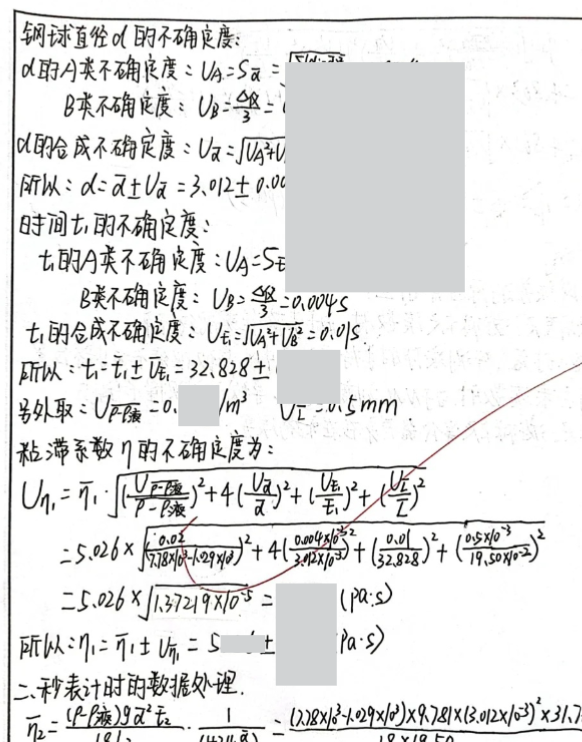 钢球直径d的不确定度:
d的A类不确定度: UA=Sd̄=
B类不确定度: UB=ΔB/3=
d的合成不确定度: Ud̄=√(UA²+U
所以: d=d̄±Ud̄=3.012±0.00
时间t₁的不确定度:
t₁的A类不确定度: UA=St̄
B类不确定度: UB=ΔB/3=0.004s
t₁的合成不确定度: Ut̄₁=√(UA²+UB²)=0.01s
所以: t₁=t̄₁±Ut̄₁=32.828±
另外取: Uρ-ρ液=0. /m³ UL̄=0.5mm
粘滞系数η的不确定度为:
Uη₁=η̄₁·√((Uρ-ρ液/(ρ-ρ液))²+4(Ud̄/d̄)²+(Ut̄₁/t̄₁)²+(UL̄/L̄)²)
=5.026×√((0.02/(7.78×10³-1.029×10³))²+4( /3.012×10⁻³)²+(0.01/32.828)²+(0.5×10⁻³/19.50×10⁻²)²)
=5.026×√(1.37219×10⁻⁵)= (pa·s)
所以: η₁=η̄₁±Uη̄₁=5 ± (Pa·s)
二、秒表计时的数据处理.
η̄₂=(ρ-ρ液)gd̄²t̄₂ · 1 =(7.78×10³-1.029×10³)×9.781×(3.012×10⁻³)²×31.7